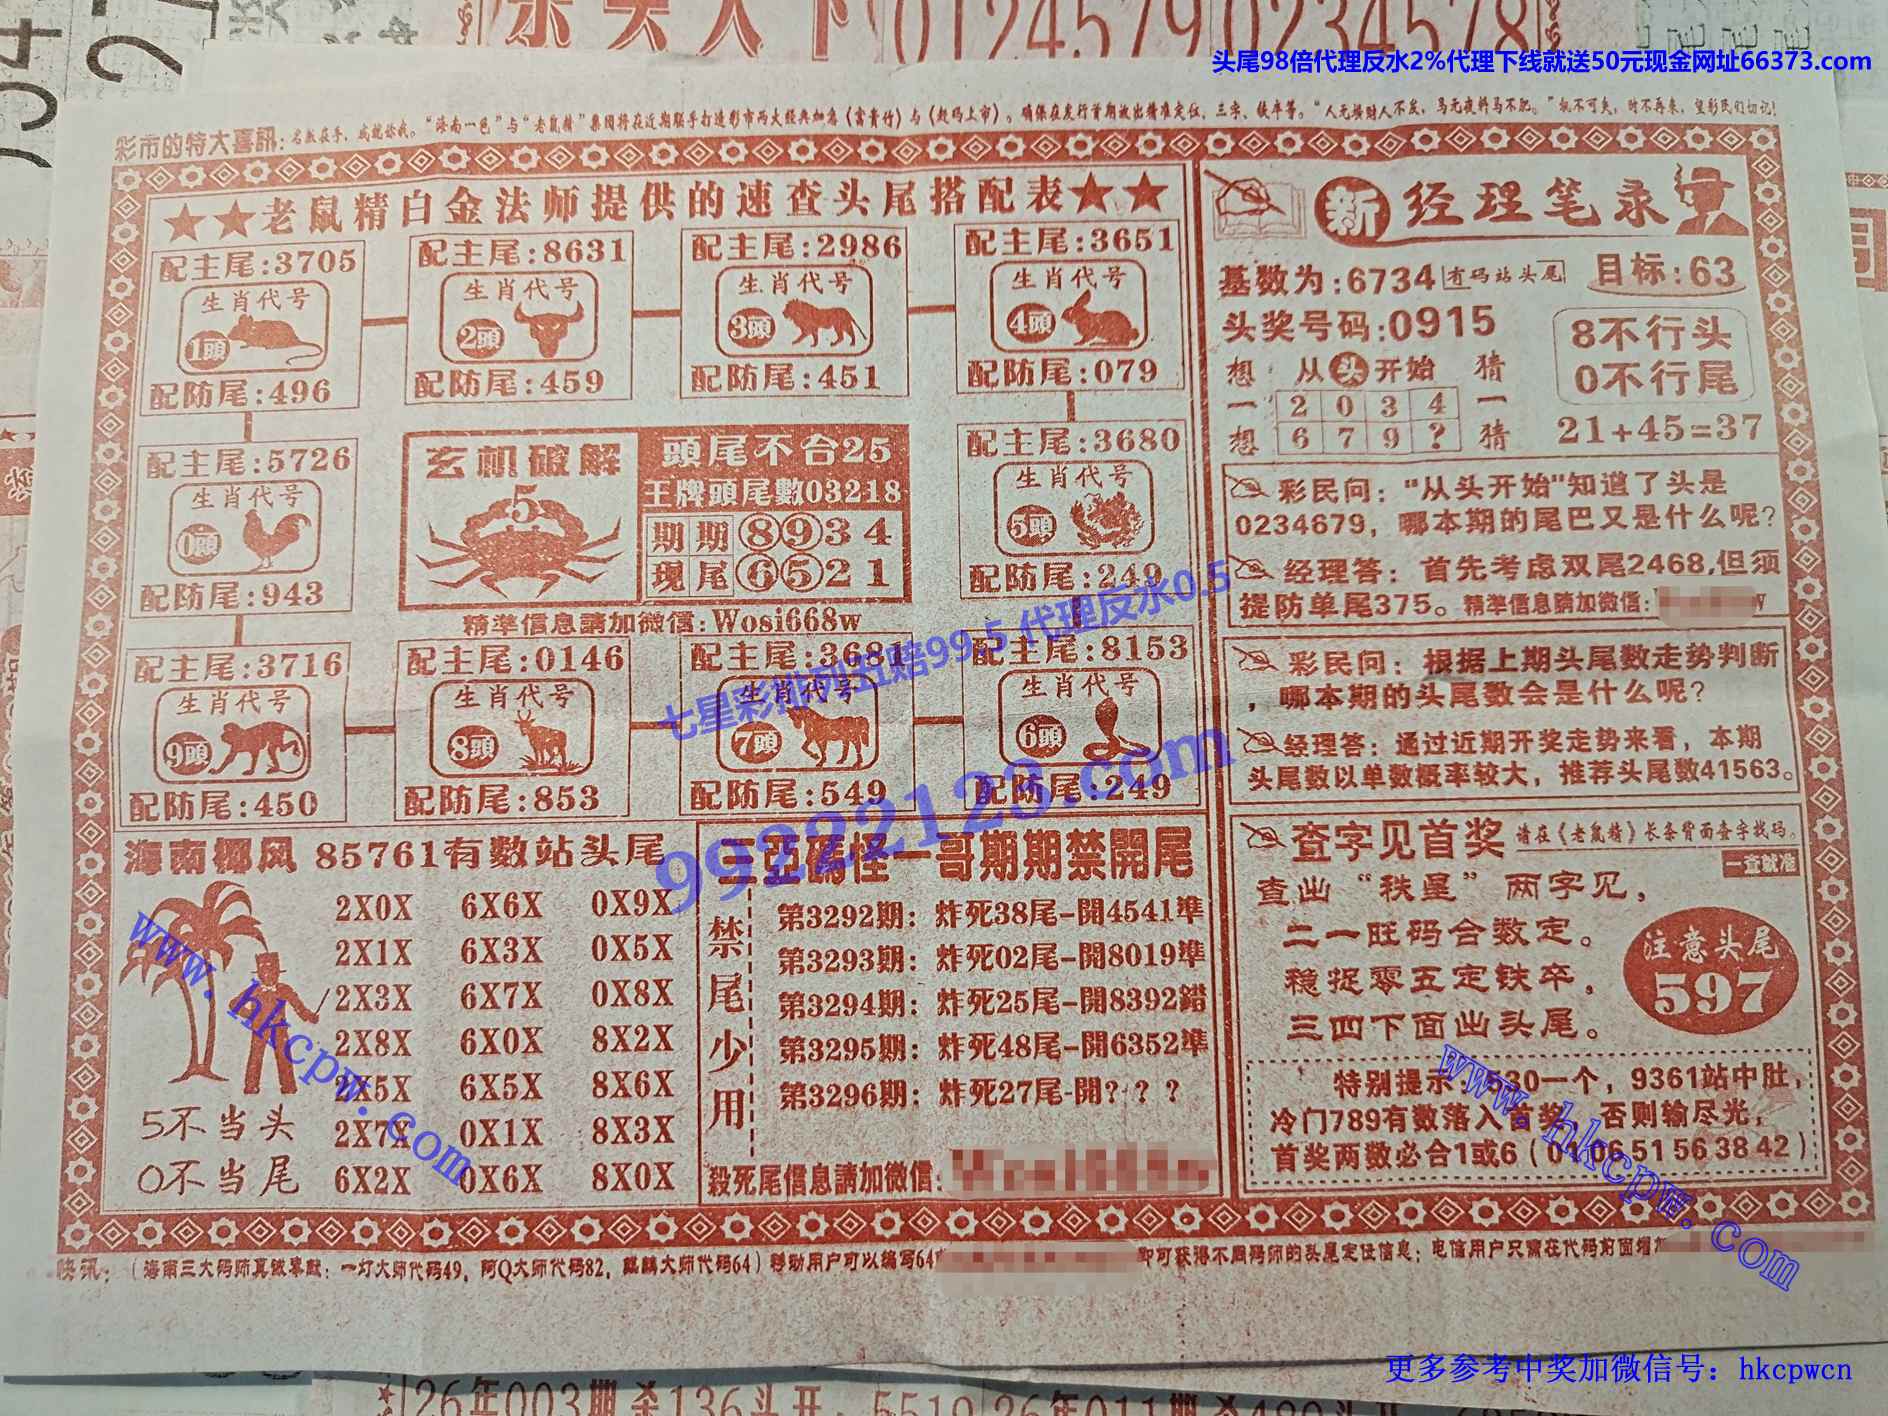 头尾98倍代理反水2%代理下线就送50元现金网址66373.com
彩市的特大喜訊：名数在手，成就你我。“海南一色”与“老鼠精”集团将在近期联手打造彩市两大经典加急《富贵竹》与《赶码上市》。确保在发行首期放出精准定位、三字、铁卒等。“人无横财人不发，马无夜料马不肥。”机不可失，时不再来，望彩民们切记！
★★老鼠精白金法师提供的速查头尾搭配表★★
配主尾:3705
生肖代号
1頭
配防尾:496
配主尾:8631
生肖代号
2頭
配防尾:459
配主尾:2986
生肖代号
3頭
配防尾:451
配主尾:3651
生肖代号
4頭
配防尾:079
配主尾:5726
生肖代号
0頭
配防尾:943
玄机破解
5
頭尾不合25
王牌頭尾數03218
期期 8934
现尾 6521
精準信息請加微信:Wosi668w
配主尾:3680
生肖代号
5頭
配防尾:249
配主尾:3716
生肖代号
9頭
配防尾:450
配主尾:0146
生肖代号
8頭
配防尾:853
配主尾:3681
生肖代号
7頭
配防尾:549
配主尾:8153
生肖代号
6頭
配防尾:249
七星彩排列五赔99.5 代理反水0.5
99222123.com
海南椰风 85761有数站头尾
2X0X 6X6X 0X9X
2X1X 6X3X 0X5X
2X3X 6X7X 0X8X
2X8X 6X0X 8X2X
2X5X 6X5X 8X6X
2X7X 0X1X 8X3X
6X2X 0X6X 8X0X
5不当头
0不当尾
www.hkcpw.com
三亞碼怪一哥期期禁開尾
禁尾少用
第3292期：炸死38尾-開4541準
第3293期：炸死02尾-開8019準
第3294期：炸死25尾-開8392錯
第3295期：炸死48尾-開6352準
第3296期：炸死27尾-開？？？
殺死尾信息請加微信:
新 经理笔录
基数为:6734 有码站头尾 目标:63
头奖号码:0915
想一想
从头开始
2 0 3 4
6 7 9 ?
猜一猜
8不行头
0不行尾
21+45=37
彩民问：“从头开始”知道了头是
0234679，哪本期的尾巴又是什么呢？
经理答：首先考虑双尾2468,但须
提防单尾375。精準信息請加微信:
彩民问：根据上期头尾数走势判断
，哪本期的头尾数会是什么呢？
经理答：通过近期开奖走势来看，本期
头尾数以单数概率较大，推荐头尾数41563。
查字见首奖 请在《老鼠精》长条背面查字找码。
一查就准
查出“秩星”两字见，
二一旺码合数定。
稳捉零五定铁卒，
三四下面出头尾。
注意头尾
597
特别提示：530一个，9361站中肚，
冷门789有数落入首奖，否则输尽光，
首奖两数必合1或6（01 06 51 56 38 42）
www.hkcpw.com
快讯：（海南三大码师真诚奉献：一灯大师代码49，阿Q大师代码82，麒麟大师代码64）移动用户可以编写64
即可获得不同码师的头尾定位信息；电信用户只需在代码前面增加
更多参考中奖加微信号：hkcpwcn
26年003期杀136头开
5519
26年011期杀